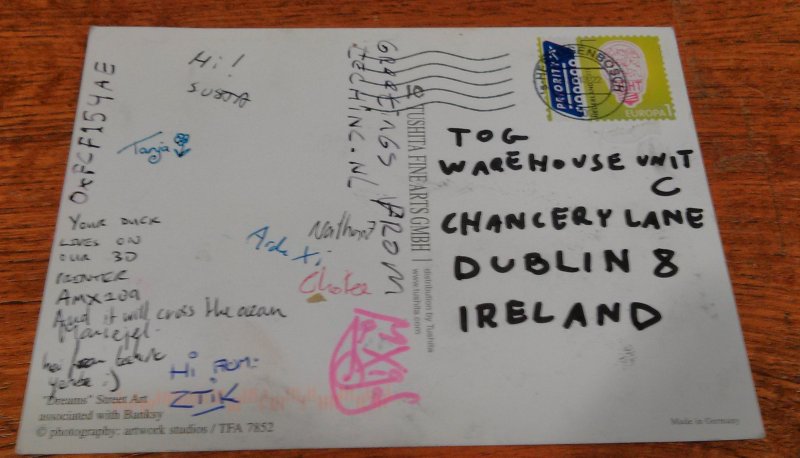 Hi!
0xFCF154AE
Tanja
YOUR DUCK
LIVES ON
OUR 3D
PRINTER
AMX209
And it will cross the
Hi FROM:
ZTiK
GREETINGS FROM
TECHINC.NL
"Dreams" Street Art
associated with Banksy
© photography: artwork studios / TFA 7852
TUSHITA FINE ARTS GMBH
distribution by Tushita
www.tushita.com
PRIORITY
EUROPA 1
TOG
WAREHOUSE UNIT
C
CHANCERY LANE
DUBLIN 8
IRELAND
Made in Germany